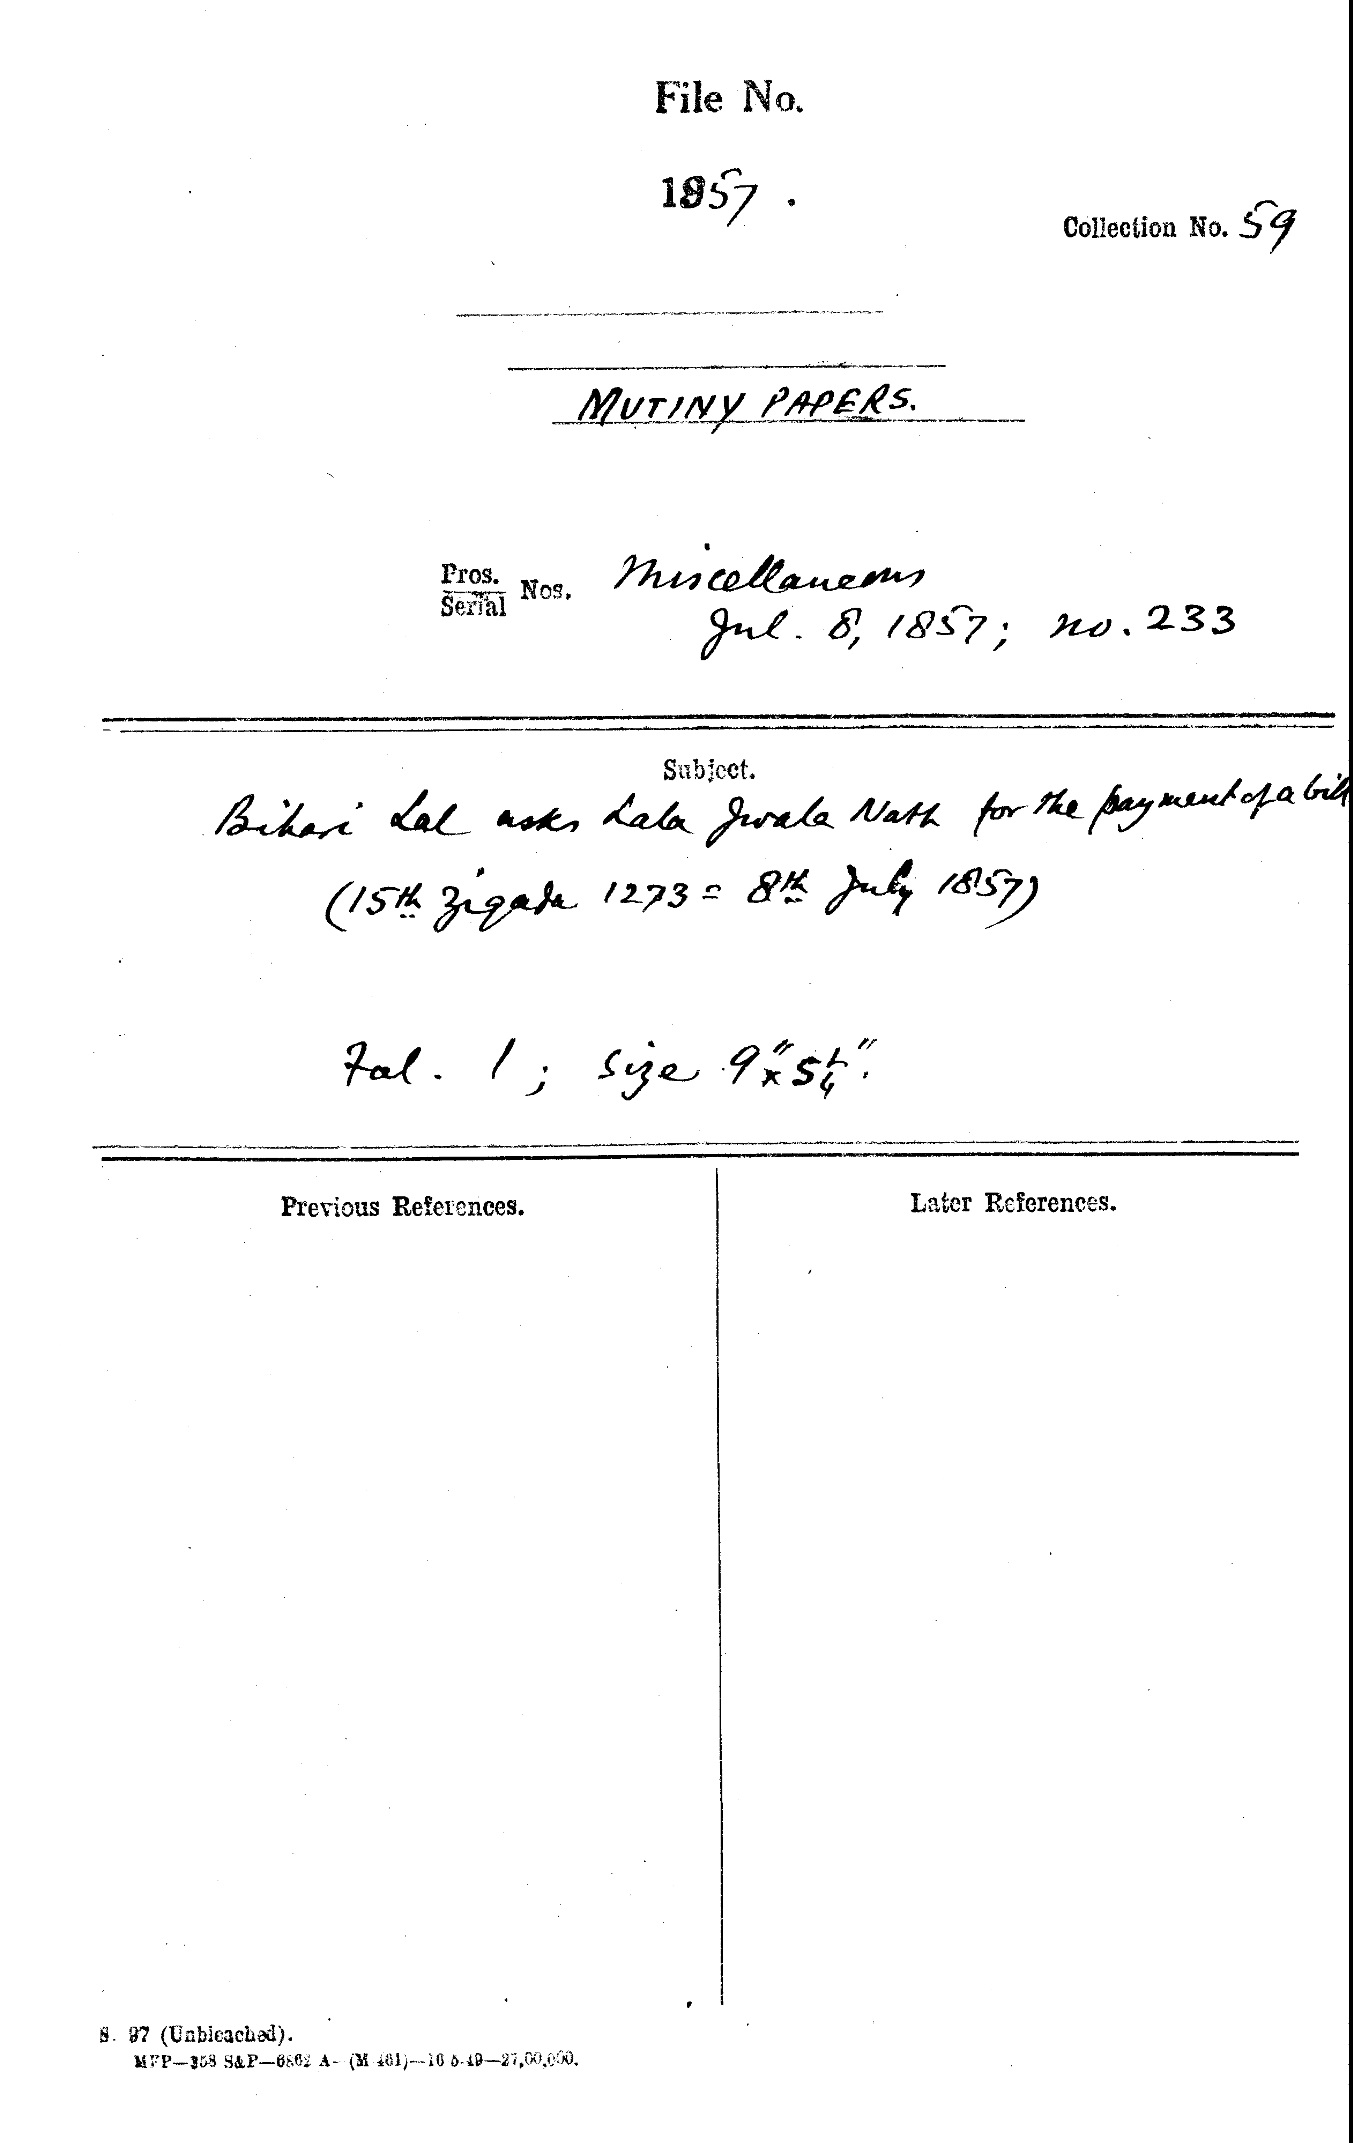 File No.
1857.
Collection No. 59
MUTINY PAPERS.
Pros.
Serial Nos. Miscellaneous
Jul. 8, 1857; no. 233
Subject.
Bihari Lal asks Lala Jwala Nath for the payment of a bill
(15th Zigada 1273 = 8th July 1857)
Fol. 1; size 9" x 5 1/4".
Previous References.
Later References.
S. 97 (Unbleached).
MFP—358 S&P—6862 A- (M 461)—16 5-49—27,00,000.